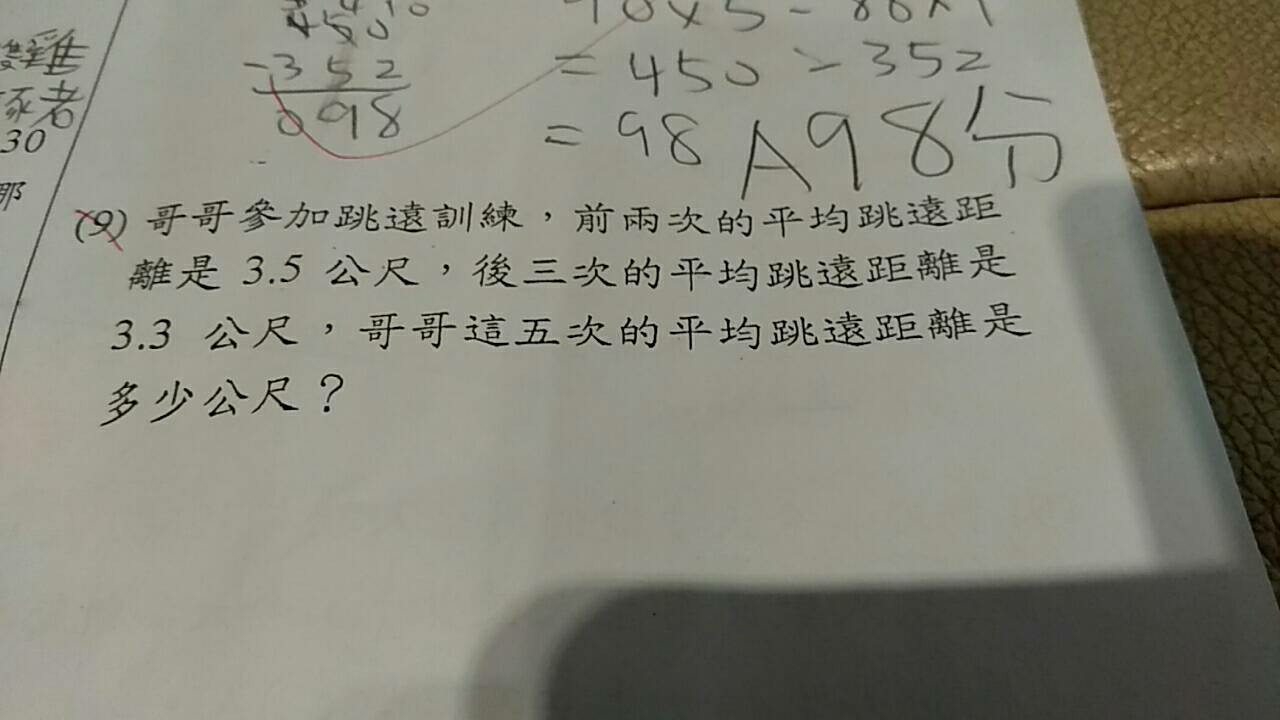 450
90×5-88×4
-352
=450-352
098
=98 A98分
者
30
那
(9) 哥哥參加跳遠訓練，前兩次的平均跳遠距
離是 3.5 公尺，後三次的平均跳遠距離是
3.3 公尺，哥哥這五次的平均跳遠距離是
多少公尺？